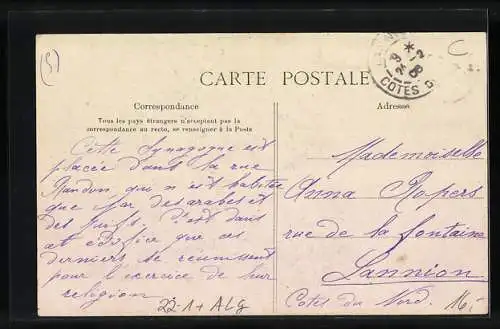 (5)
C
CARTE POSTALE
COTES D
9
24 - 2
08
Correspondance
Tous les pays étrangers n'acceptent pas la
correspondance au recto, se renseigner à la Poste
Adresse
Cette Synagogue est
placée dans la rue
qui n'est habitée
que par des arabes et
des juifs. C'est dans
cet édifice que ces
derniers se réunissent
pour l'exercice de leur
religion
22-1+ ALG
Mademoiselle
Anna Ropers
rue de la fontaine
Lannion
Cotes du Nord.
16.-